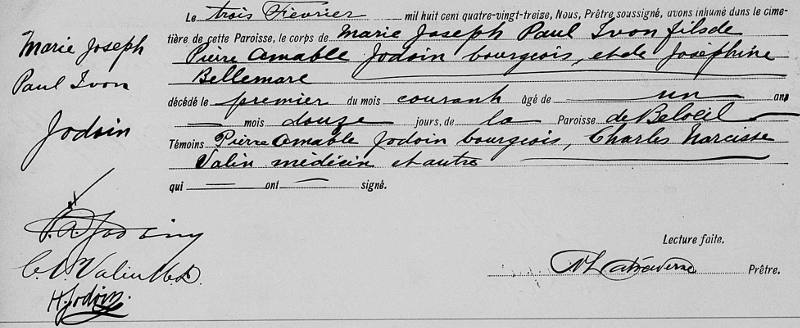 Marie Joseph
Paul Ivon
Jodoin
Le trois Février mil huit cent quatre-vingt-treize, Nous, Prêtre soussigné, avons inhumé dans le cime-
tière de cette Paroisse, le corps de Marie Joseph Paul Ivon fils de
Pierre Amable Jodoin bourgeois, et de Joséphine
Bellemare
décédé le premier du mois courant âgé de un an
mois douze jours, de la Paroisse de Beloeil
Témoins Pierre Amable Jodoin bourgeois, Charles Narcisse
Valin médecin et autre
qui — ont — signé.
P.A. Jodoin
C.N. Valin M.D.
H. Jodoin
Lecture faite.
Prêtre.